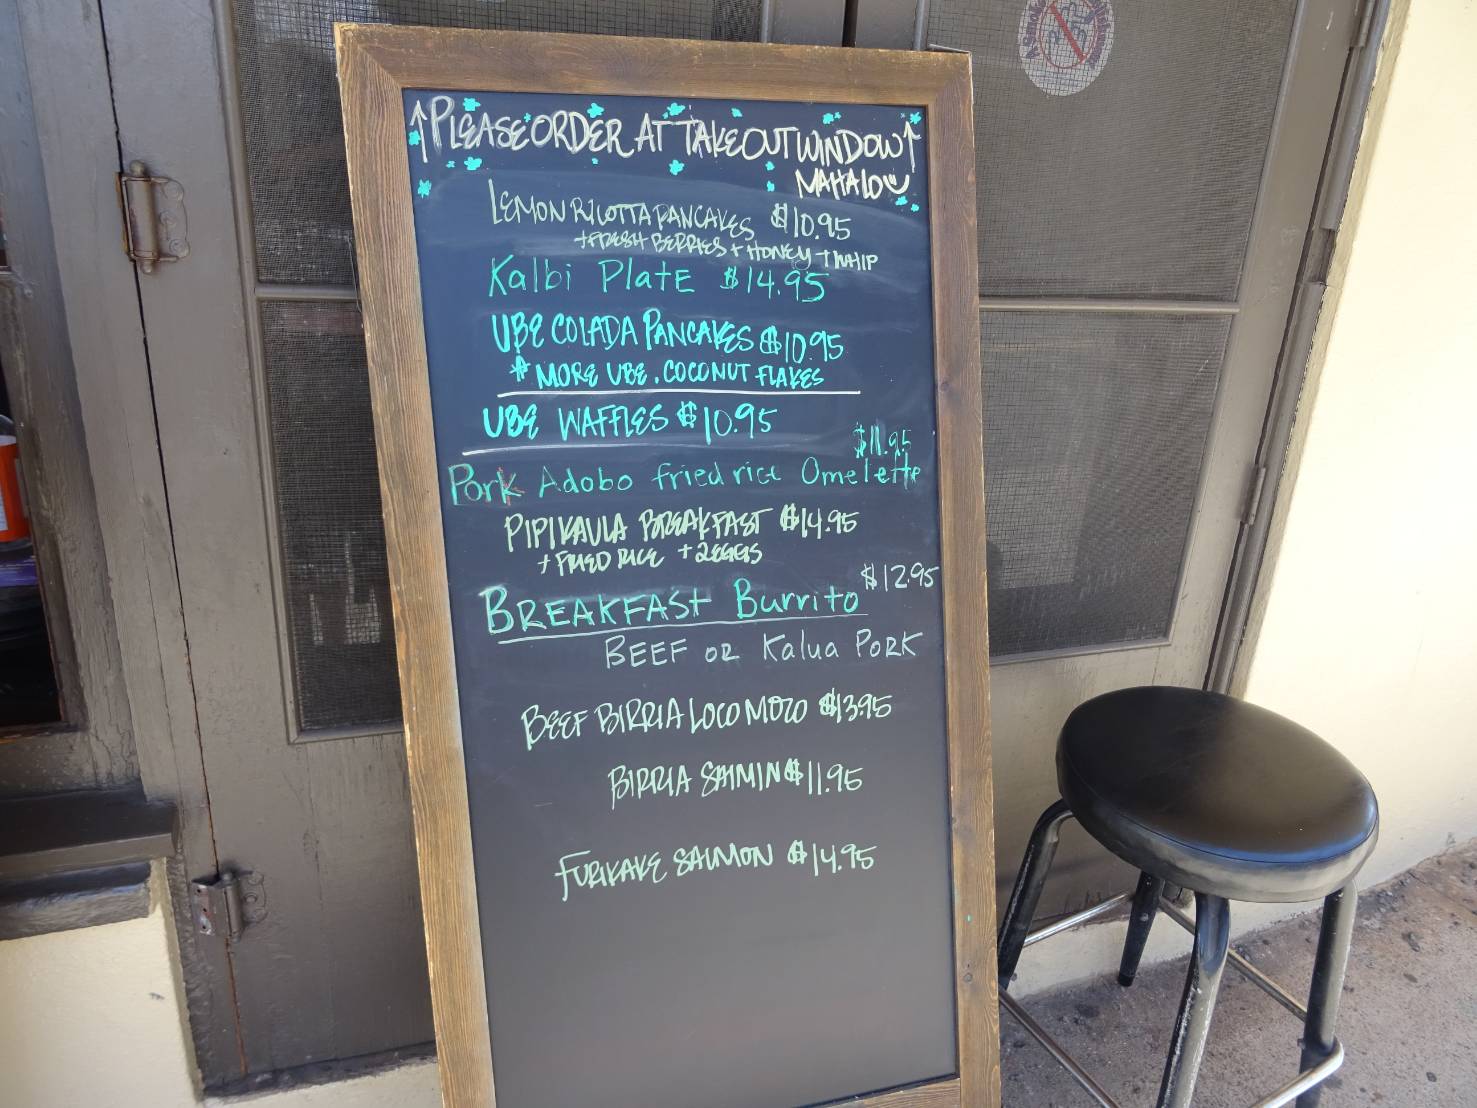 ↑PLEASE ORDER AT TAKEOUT WINDOW↑
MAHALO
LEMON RICOTTA PANCAKES $10.95
+FRESH BERRIES + HONEY + WHIP
Kalbi PlatE $14.95
UBE COLADA PANCAKES $10.95
* MORE UBE. COCONUT FLAKES
UBE WAFFLES $10.95
$11.95
Pork Adobo fried rice Omelette
PIPIKAULA BREAKFAST $14.95
+ FRIED RICE + 2 EGGS
$12.95
BREAKFASt Burrito
BEEF OR Kalua PORK
BEEF BIRRIA LOCO MOCO $13.95
BIRRIA SAIMIN $11.95
FURIKAKE SALMON $14.95